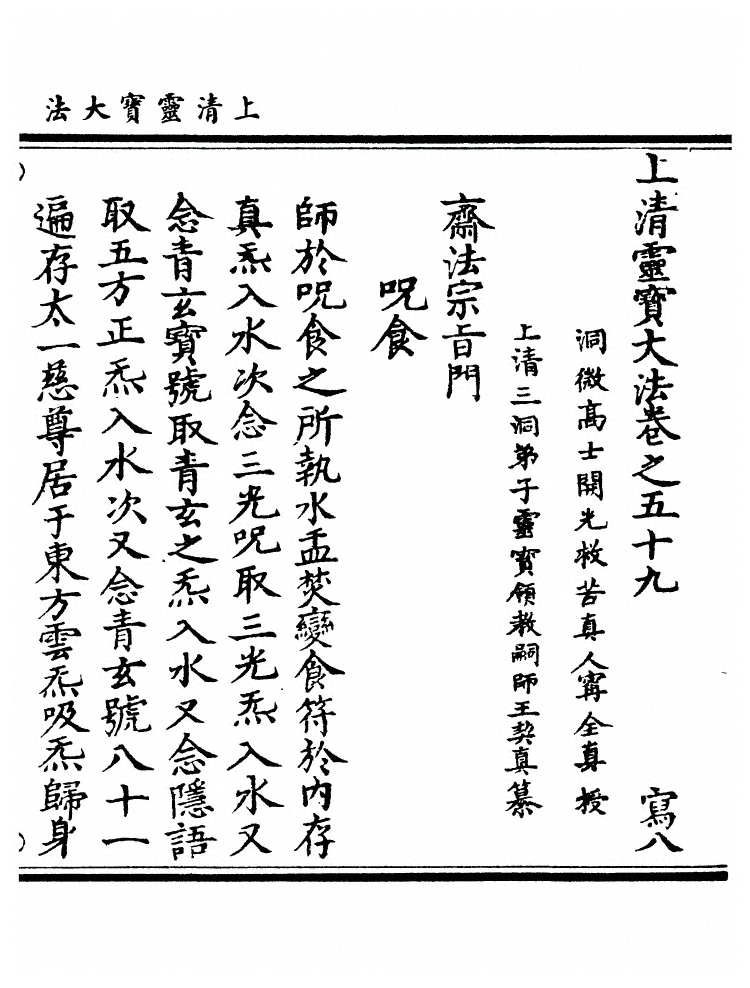 上清靈寶大法
上清靈寶大法卷之五十九 寫八
洞微高士開光救苦真人甯全真授
上清三洞弟子靈寶領教嗣師王契真纂
齋法宗旨門
呪食
師於呪食之所執水盂焚變食符於內存
真炁入水次念三光呪取三光炁入水又
念青玄寶號取青玄之炁入水又念隱語
取五方正炁入水次又念青玄號八十一
遍存太一慈尊居于東方雲炁吸炁歸身